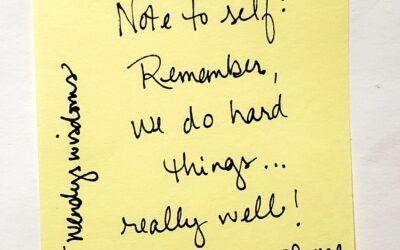 Note to self:
Remember,
we do hard
things...
really well!
Wendyswisdoms